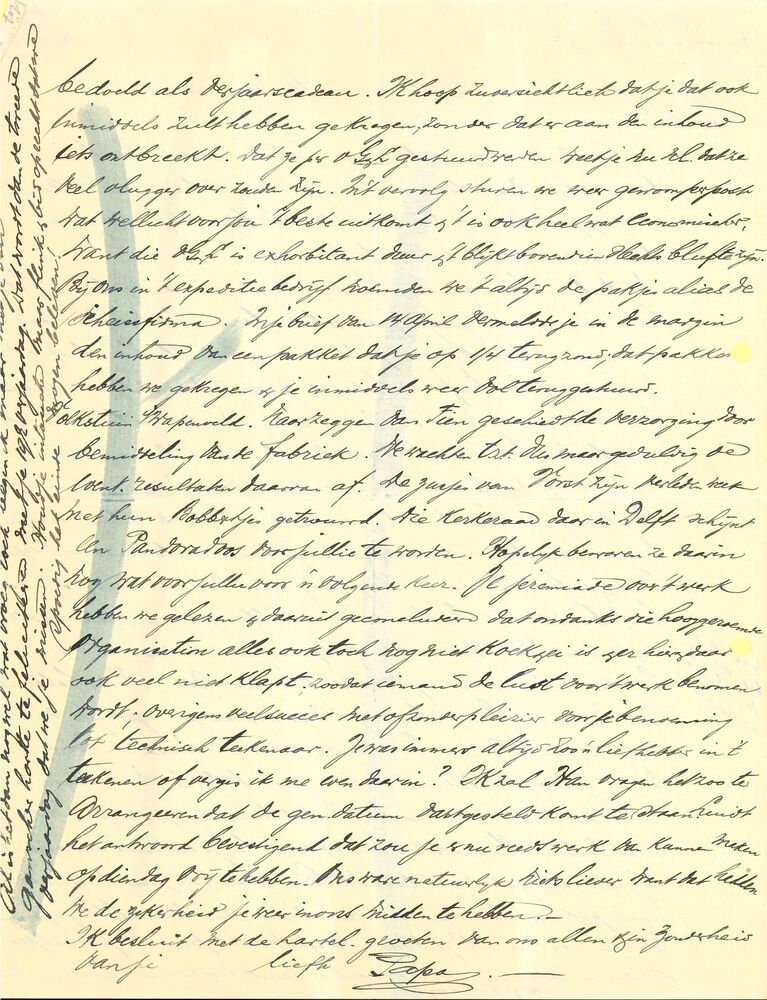 bedoeld als verjaarscadeau. Ik hoop zuversichtlich dat je dat ook
inmiddels zult hebben gekregen, zonder dat er aan den inhoud
iets ontbreekt. Dat ze per gestuurd werden weet je nu al. dat ze
veel vlugger over zouden zijn. In 't vervolg sturen we weer gewoon per post
wat wellicht voor jou 't beste uitkomt & 't is ook heel wat economischer,
want die is exhorbitant duur & 't blijkt bovendien slechts bluf te zijn.
Bij ons in 't expeditiebedrijf noemden we 't altijd de pakjes alias de
Scheissfirma. In je brief van 14 April vermeldde je in de margin
den inhoud van een pakket dat je op 1/4 terugzond, dat pakket
hebben we gekregen & je inmiddels weer vol teruggestuurd.
Wapenveld. Naar zeggen van Tien geschiedt de verzorging door
bemiddeling van de fabriek. We wachten tzt. dus maar geduldig de
event. resultaten daarvan af. De zusjes van Vorst zijn verleden week
met hun Robbertjes getrouwd. Die Kerkeraad daar in Delft schijnt
'n Pandoradoos voor jullie te worden. Hopelijk bewaren ze daarin
nog wat voor jullie voor 'n volgende keer. Je jeremiade over 't werk
hebben we gelezen & daaruit geconcludeerd dat ondanks die hooggeroemde
Organisation alles ook toch nog niet Koek & ei is & er hier & daar
ook veel niet klapt, zoodat iemand de lust voor 't werk benomen
wordt; overigens veel succes met of zonder pleizier voor je benoeming
tot technisch teekenaar. Je was immers altijd zoo'n liefhebber in 't
teekenen of vergis ik me even daarin? Ik zal Han vragen het zoo te
arrangeeren dat de gen. datum vastgesteld komt te staan & luidt
het antwoord bevestigend dat zou je & nu reeds werk van kunnen maken
op dien dag vrij te hebben. Ons ware natuurlijk niets liever want dat hadden
we de zekerheid je weer in ons midden te hebben.—
Ik besluit met de hartel. groeten van ons allen & in zonderheid
van je liefh Papa. —
Al is het dan nog wel wat vroeg toch wegen ik maar
gaanscher harte te feliciteeren met je 19e verjaardag. Dat wordt dan de tweede
verjaardag dat we je missen. Houd je intusschen maar flink & bid oprecht dat we
spoedig het einde mogen beleven!